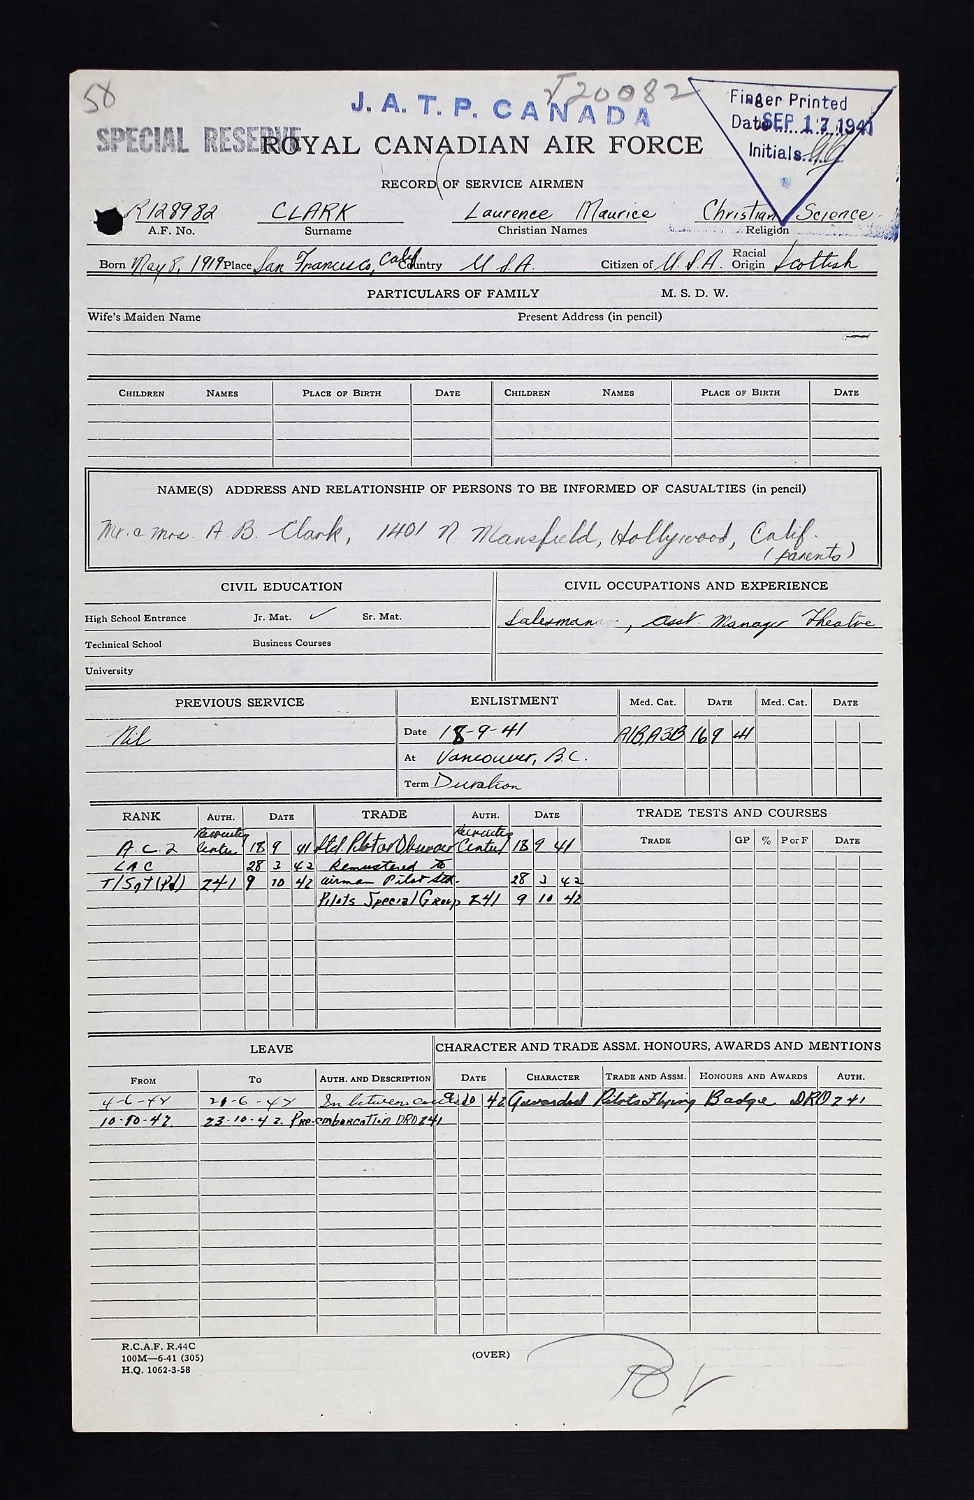 58
J20082
J. A. T. P. CANADA
Finger Printed
Date SEP 17 1941
Initials
SPECIAL RESERVE
ROYAL CANADIAN AIR FORCE
RECORD OF SERVICE AIRMEN
R128982 CLARK Laurence Maurice Christian Science
A.F. No. Surname Christian Names Religion
Born May 8, 1919 Place San Francisco, Calif Country U.S.A. Citizen of U.S.A. Racial Origin Scottish
PARTICULARS OF FAMILY M. S. D. W.
Wife's Maiden Name Present Address (in pencil)
CHILDREN NAMES PLACE OF BIRTH DATE CHILDREN NAMES PLACE OF BIRTH DATE
NAME(S) ADDRESS AND RELATIONSHIP OF PERSONS TO BE INFORMED OF CASUALTIES (in pencil)
Mr. & Mrs. A. B. Clark, 1401 N Mansfield, Hollywood, Calif.
(parents)
CIVIL EDUCATION CIVIL OCCUPATIONS AND EXPERIENCE
High School Entrance Jr. Mat. ✓ Sr. Mat. Salesman, Asst. Manager Theatre
Technical School Business Courses
University
PREVIOUS SERVICE ENLISTMENT Med. Cat. DATE Med. Cat. DATE
Nil Date 18-9-41 A1B, A3B 16 9 41
At Vancouver, B.C.
Term Duration
RANK AUTH. DATE TRADE AUTH. DATE TRADE TESTS AND COURSES
TRADE GP % P or F DATE
A.C.2 Recruiting Center 18 9 41 Std Pilot or Observer Recruiting Center 18 9 41
LAC 28 3 42 Remustered to
T/Sgt (Pd) 241 9 10 42 airman Pilot Std. 28 3 42
Pilots Special Group 241 9 10 42
LEAVE CHARACTER AND TRADE ASSM. HONOURS, AWARDS AND MENTIONS
FROM TO AUTH. AND DESCRIPTION DATE CHARACTER TRADE AND ASSM. HONOURS AND AWARDS AUTH.
4-6-42 20-6-42 In between courses 10 42 Awarded Pilots Flying Badge DRO 241
10-10-42 23-10-42 Pre-embarcation DRO 241
R.C.A.F. R.44C
100M—6-41 (305)
H.Q. 1062-3-58
(OVER)